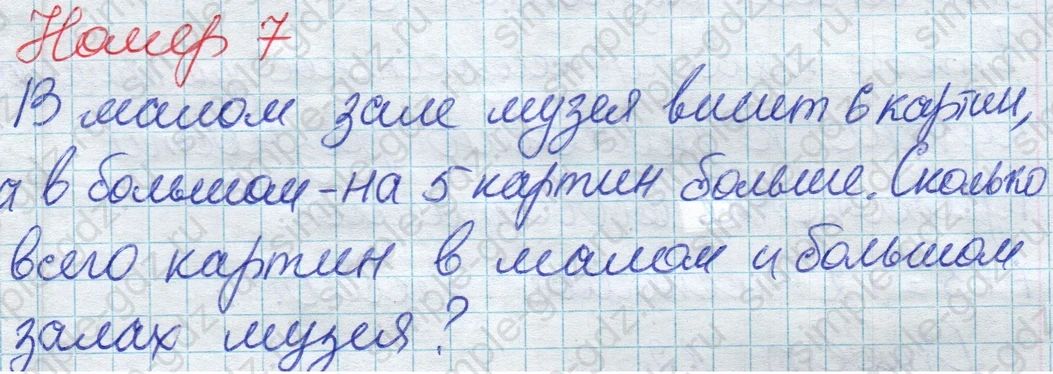 Номер 7
В малом зале музея висит 6 картин,
а в большом - на 5 картин больше. Сколько
всего картин в малом и большом
залах музея?